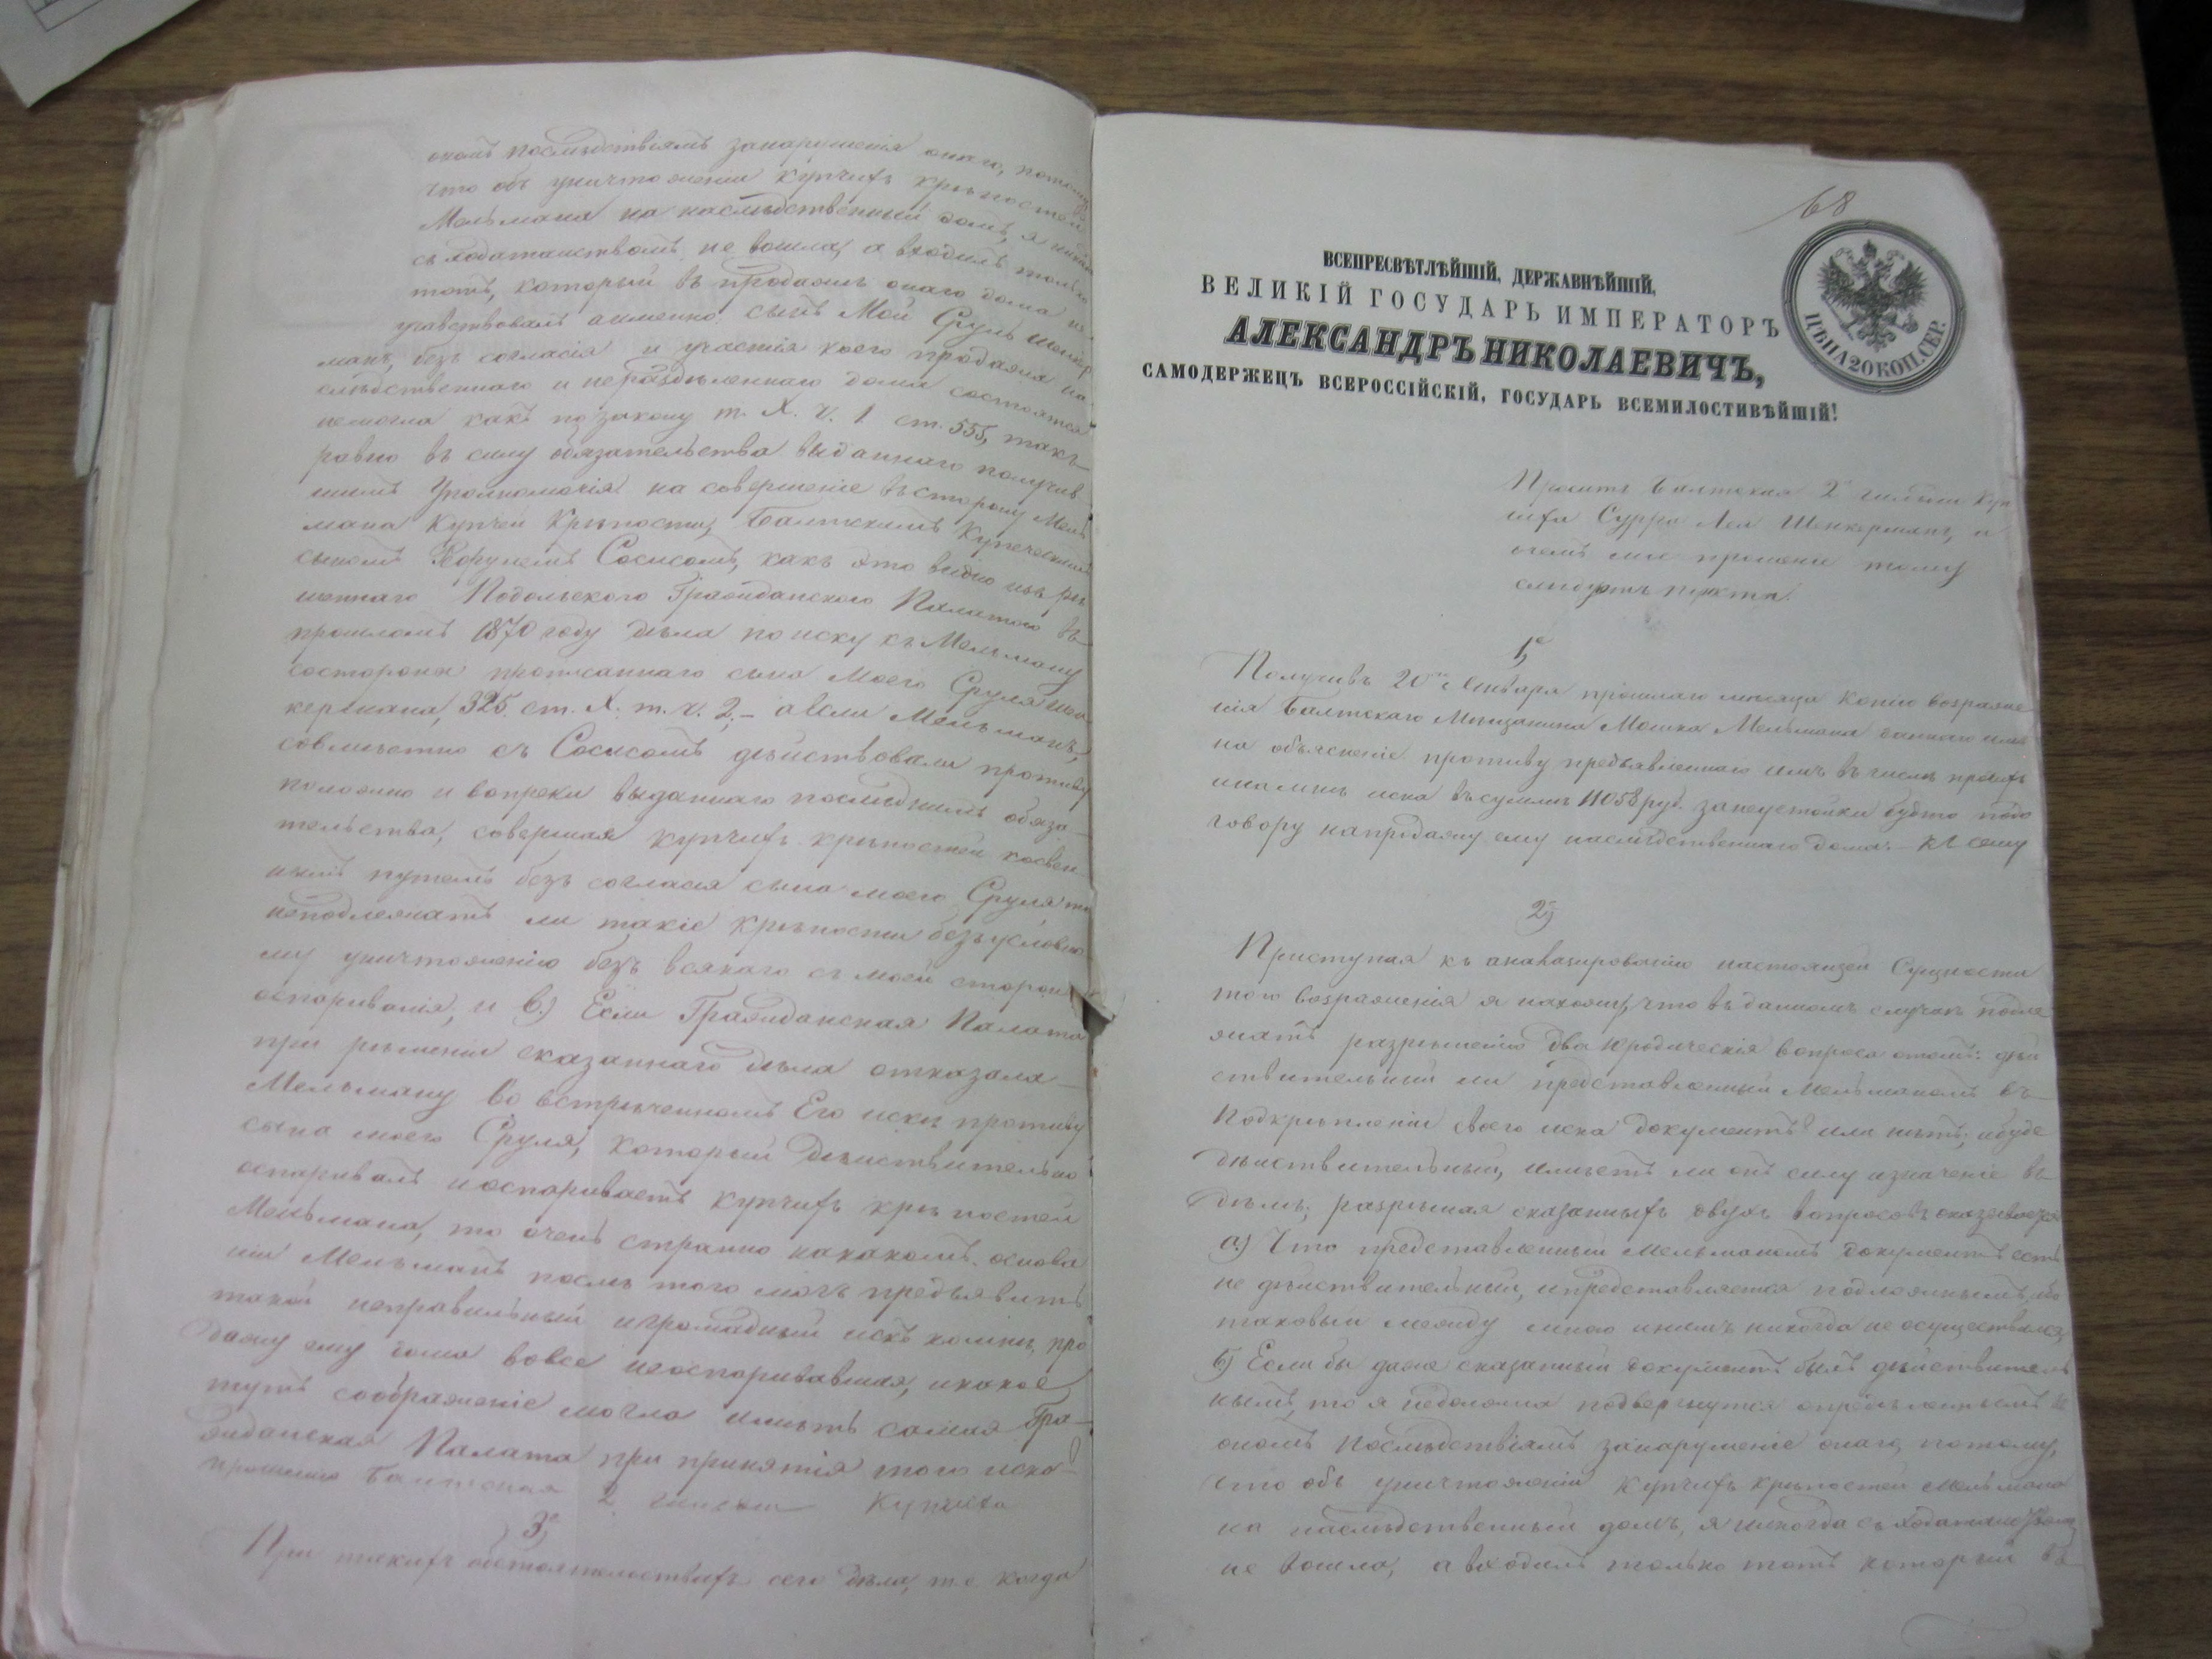 ономъ последствіямъ занарушенія онаго, потому
что объ уничтоженіи купчихъ крѣпостей
Мельмана на наслѣдственный домъ, я никогда
съ ходатайствомъ не вошла, а входилъ только
тотъ, который въ продажѣ онаго дома не
участвовалъ аименно: сынъ Мой Сруль Шенкер
манъ, безъ согласія и участія коего продажа на
слѣдственнаго и нераздѣленнаго дома состоятся
немогла какъ по закону т. X. ч. 1 ст. 555, такъ
равно въ силу обязательства выданнаго получив
шимъ Уполномочія на совершеніе въ сторону Мель
мана купчей Крѣпости, Балтскимъ Купеческимъ
сыномъ Сосисомъ, какъ это видно изъ рѣ
шеннаго Подольскою Гражданскою Палатою въ
прошломъ 1870 году дѣла по иску къ Мельману
состороны прописаннаго сына Моего Сруля Шен
кермана, 325 ст. X. т. ч. 2; – аесли Мельманъ,
совмѣстно съ Сосисомъ дѣйствовали противу
положно и вопреки выданнаго послѣднимъ обяза
тельства, совершая купчихъ крѣпостей косвен
нымъ путемъ безъ согласія сына моего Сруля то
неподлежатъ ли такіе крѣпости безъусловно
му уничтоженію безъ всякаго съ моей стороны
оспориванія, и в.) Если Гражданская Палата
при рѣшеніи сказаннаго дѣла отказала
Мельману во встрѣченномъ Его искѣ противу
сына моего Сруля, который Дѣйствительно
оспоривалъ иоспориваетъ купчихъ крѣпостей
Мельмана, то очень странно накакомъ основа
ніи Мельманъ послѣ того могъ предъявить
такой неправильный игромадный искъ комнѣ, про
дажу ему дома вовсе неоспоривавшая, икакое
тутъ соображеніе могла имѣть самая Гра-
жданская Палата при принятія того иска
прошенію Балтская 2 гильдіи Купчиха
3.
При такихъ обстоятельствахъ сего дѣла, т.е. когда
68
ВСЕПРЕСВѢТЛѢЙШІЙ, ДЕРЖАВНѢЙШІЙ,
ВЕЛИКІЙ ГОСУДАРЬ ИМПЕРАТОРЪ
АЛЕКСАНДРЪ НИКОЛАЕВИЧЪ,
САМОДЕРЖЕЦЪ ВСЕРОССІЙСКІЙ, ГОСУДАРЬ ВСЕМИЛОСТИВѢЙШІЙ!
ЦѢНА 20 КОП. СЕР.
Проситъ Балтская 2й гильдіи Куп
чиха Сурра Лея Шенкерманъ, о
чемъ мое прошеніе тому
слѣдуютъ пункты.
1,
Получивъ 20го Января прошлаго мѣсяца Копію возраже
нія Балтскаго Мѣщанина Мошка Мельмана
на объясненіе противу предъявленнаго имъ въ числѣ прочихъ
иска въ суммѣ 11058 руб. занеустойки будто подо
говору напродажу ему наслѣдственнаго дома. – Къ сему
2,
Приступая къ анализированію настоящей Сущности
того возраженія я нахожу, что въ данномъ случаѣ подле
жатъ разрѣшенію два Юридическія вопроса отомъ: дѣй
ствительный ли представленный Мельманомъ въ
Подкрѣпленіи своего иска документъ или нѣтъ; ибуде
дѣйствительный, имѣетъ ли онъ силу изначеніе въ
дѣлѣ; разрѣшая сказанныхъ двухъ вопросовъ оказывается
а.) Что представленный Мельманомъ документъ есть
не дѣйствительный, ипредставляется подложнымъ, ибо
таковый между мною инимъ никогда не осуществился,
б) Если бы даже сказанный документъ былъ дѣйствитель
нымъ, то я недолжна подвергнутся опредѣленнымъ въ
ономъ последствіямъ занарушеніе онаго, потому,
что объ уничтоженіи купчихъ крѣпостей Мельмана
на наслѣдственный домъ, я никогда съ ходатайствомъ
не вошла, а входилъ только тотъ который въ